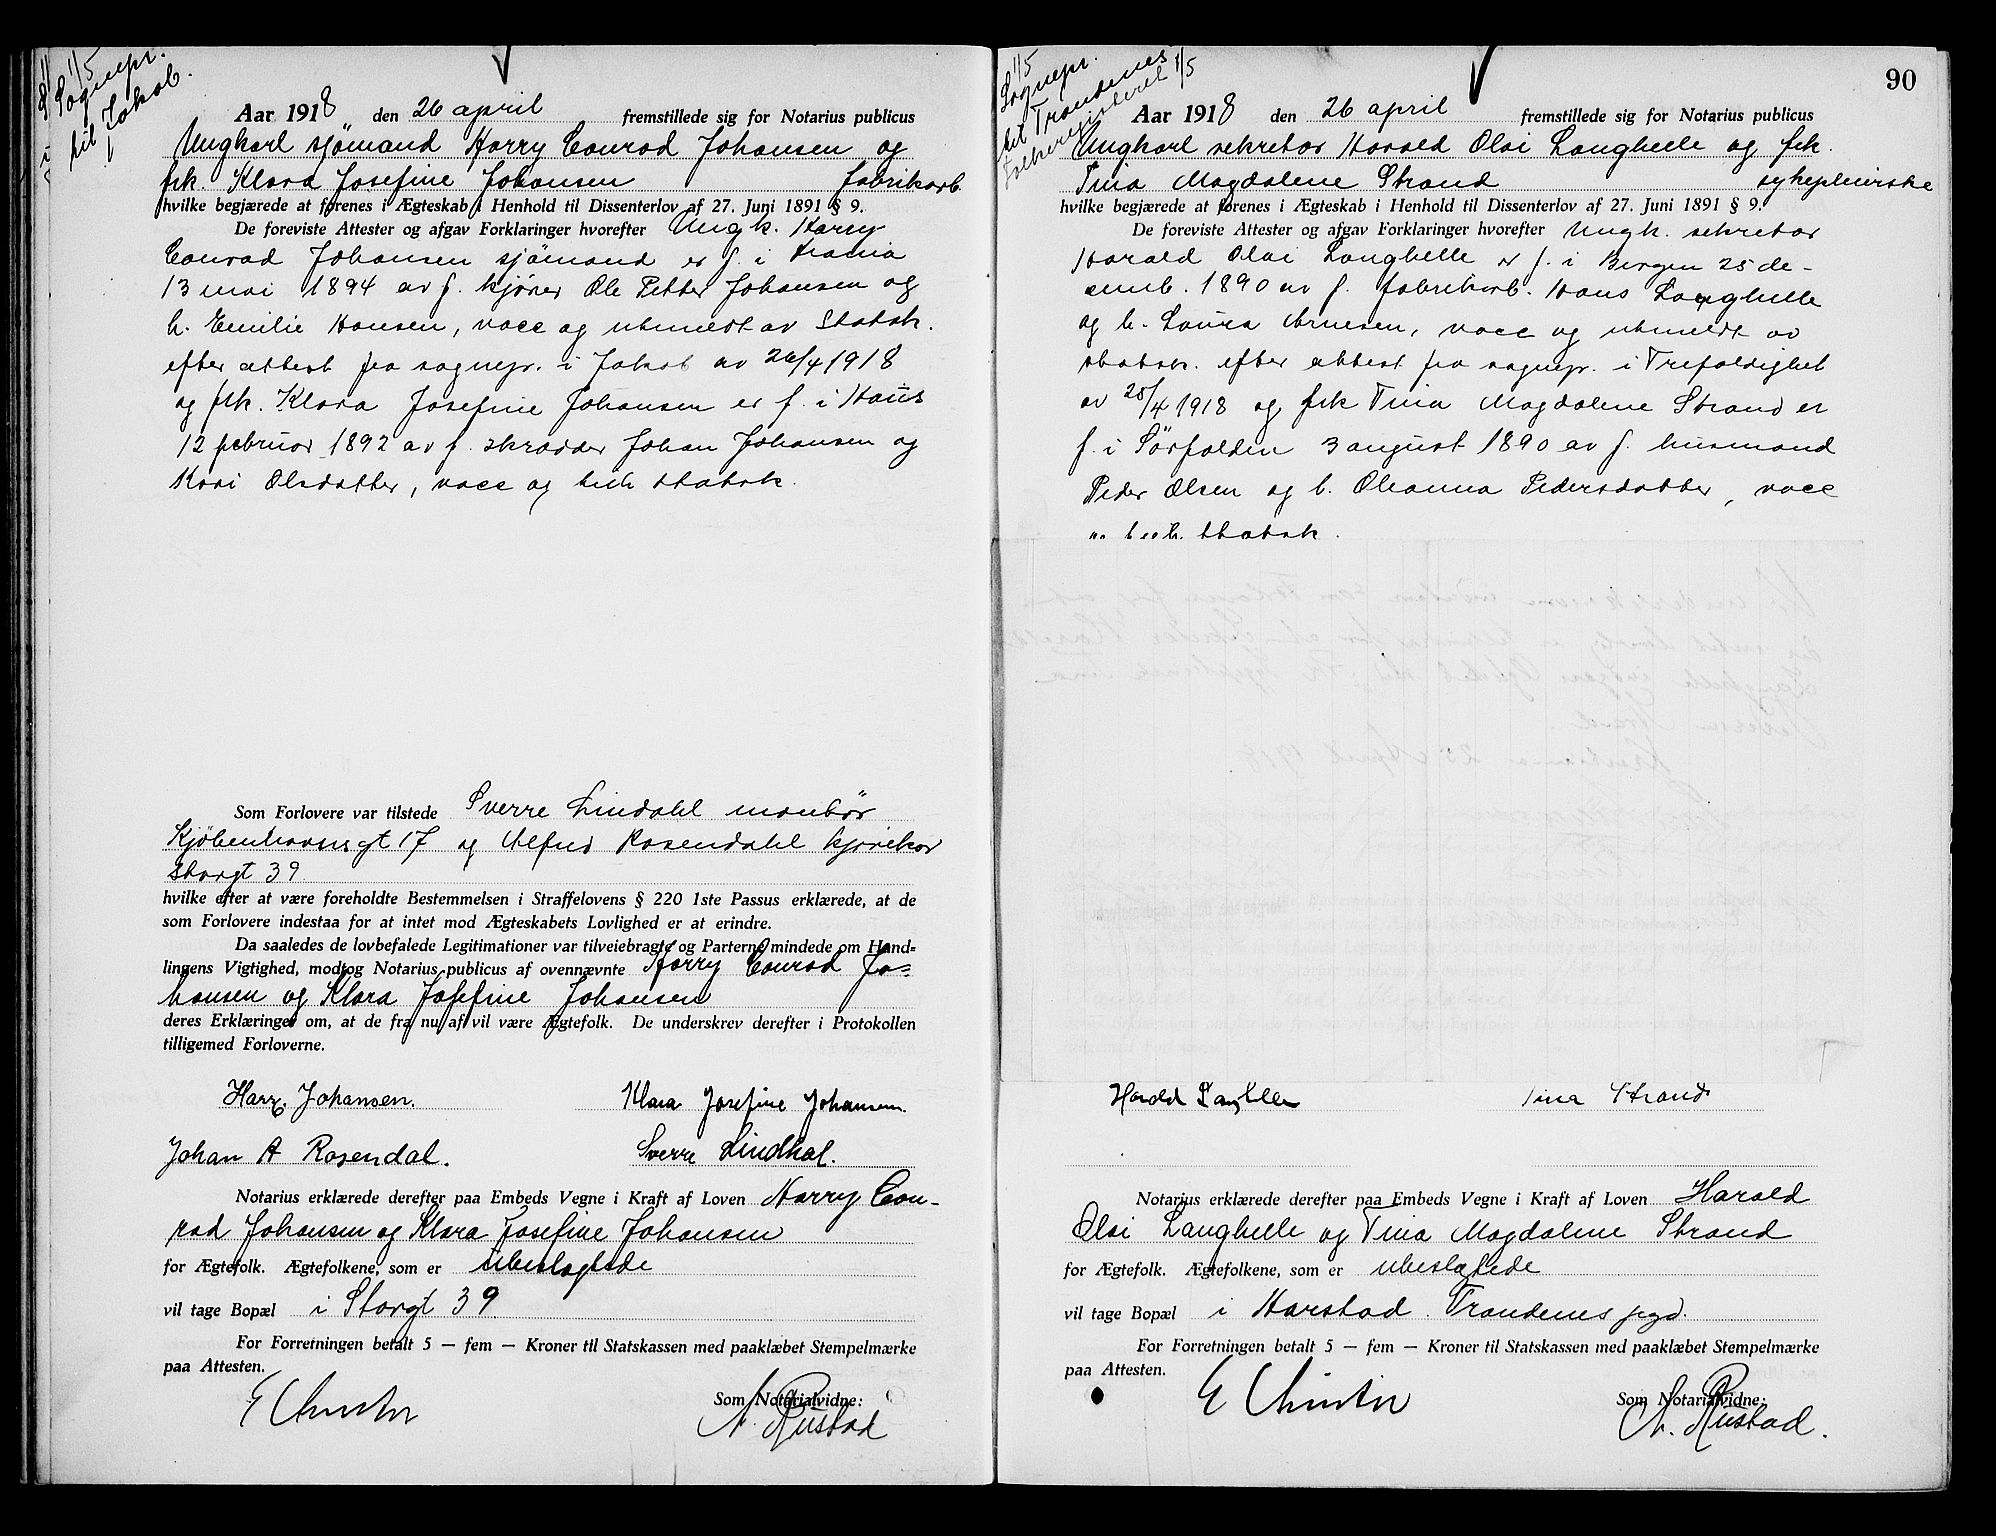 1/5
Sognepr.
til Jakob.
Aar 1918 den 26 april fremstillede sig for Notarius publicus
Ungkarl sjömand Harry Conrad Johansen og
frk. Klara Josefine Johansen fabrikarb.
hvilke begjærede at forenes i Ægteskab i Henhold til Dissenterlov af 27. Juni 1891 § 9.
De foreviste Attester og afgav Forklaringer hvorefter Ungk. Harry
Conrad Johansen sjömand er f. i
13 mai 1894 av f. kjörer Ole Petter Johansen og
h. Emilie Hansen, vacc og utmeldt av Statsk.
efter attest fra sognepr. i Jakob av 26/4 1918
og frk. Klara Josefine Johansen er f. i Haus
12 februar 1892 av f. skrædder Johan Johansen og
Kari Olsdatter, vacc og tilh statsk.
Som Forlovere var tilstede Sverre Lindahl montör
Kjöbenhavnsgt 17 og Alfred Rosendahl
Storgt 39
hvilke efter at være foreholdte Bestemmelsen i Straffelovens § 220 1ste Passus erklærede, at de
som Forlovere indestaa for at intet mod Ægteskabets Lovlighed er at erindre.
Da saaledes de lovbefalede Legitimationer var tilveiebragte og Parterne mindede om Hand-
lingens Vigtighed, modtog Notarius publicus af ovennævnte Harry Conrad Jo-
hansen og Klara Josefine Johansen
deres Erklæringer om, at de fra nu af vil være Ægtefolk. De underskrev derefter i Protokollen
tilligemed Forloverne.
Harry Johansen. Klara Josefine Johansen.
Johan A Rosendal. Sverre Lindhal.
Notarius erklærede derefter paa Embeds Vegne i Kraft af Loven Harry Con-
rad Johansen og Klara Josefine Johansen
for Ægtefolk. Ægtefolkene, som er ubeslægtede
vil tage Bopæl i Storgt 39
For Forretningen betalt 5 — fem — Kroner til Statskassen med paaklæbet Stempelmærke
paa Attesten.
Som Notarialvidne:
Rustad
90
1/5
Sognepr.
til Trondenes
Folkeregisteret 1/5
Aar 1918 den 26 april fremstillede sig for Notarius publicus
Ungkarl sekretær Harald Olai Langhelle og frk.
Tina Magdalene Strand sykepleierske
hvilke begjærede at forenes i Ægteskab i Henhold til Dissenterlov af 27. Juni 1891 § 9.
De foreviste Attester og afgav Forklaringer hvorefter Ungk. sekretær
Harald Olai Langhelle er f. i Bergen 25 de-
cemb. 1890 av f. fabrikarb. Hans Langhelle
og h. Laura Arnesen, vacc og utmeldt av
statsk. efter attest fra sognepr. i Trefoldighet
av 25/4 1918 og frk Tina Magdalene Strand er
f. i Sörfolden 3 august 1890 av f. husmand
Peder Olsen og h. Oleanna Pedersdatter, vacc
og tilh. statsk.
Harald Langhelle Tina Strand
Notarius erklærede derefter paa Embeds Vegne i Kraft af Loven Harald
Olai Langhelle og Tina Magdalene Strand
for Ægtefolk. Ægtefolkene, som er ubeslægtede
vil tage Bopæl i Harstad. Trondenes pgd.
For Forretningen betalt 5 — fem — Kroner til Statskassen med paaklæbet Stempelmærke
paa Attesten.
Som Notarialvidne:
Rustad.